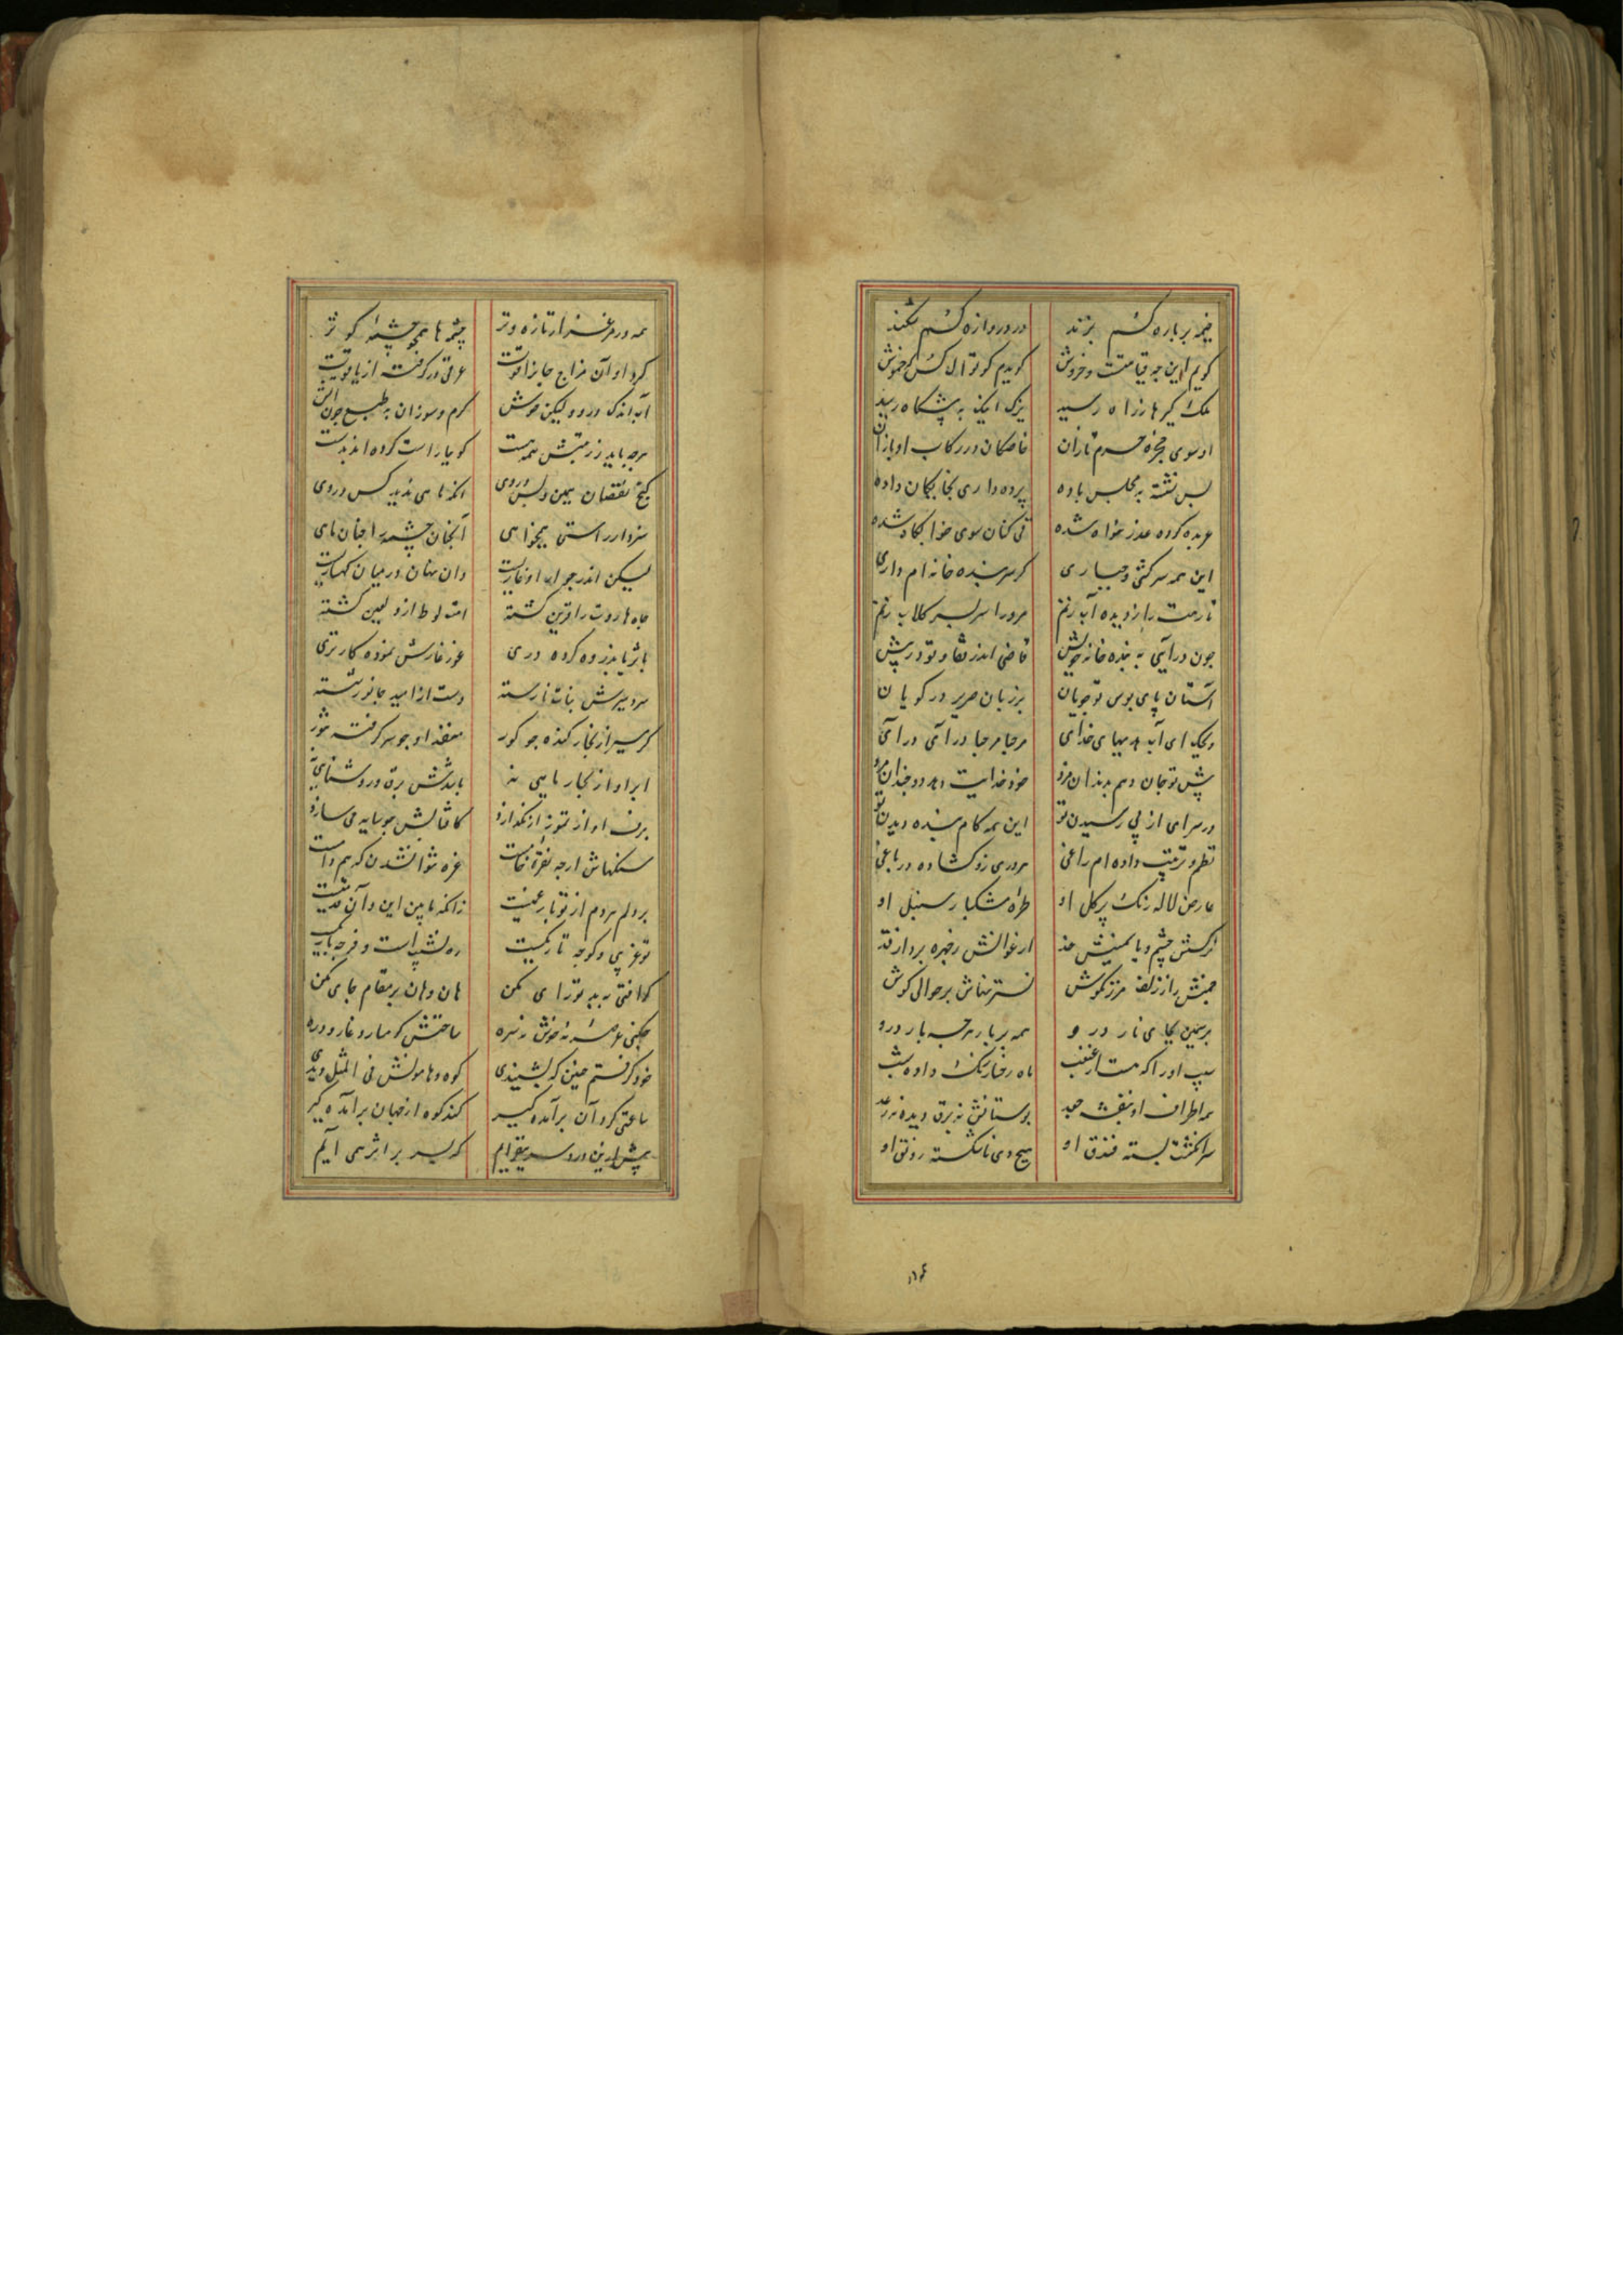 خیمه بر باره کسم بزند
در دروازه کسم بکند
کویم این چه قیامتست و خروش
کویدم کو توال کس که خموش
ملک کیرها ز راه رسید
یزک اینک به پیشکاه رسید
او سوی حجره حرم تازان
خاصکان در رکاب او بازان
پس نشسته به مجلس باده
پرده داری بخایکان داده
عربده کرده عذر خواه شده
قی کنان سوی خوابکاه شده
این همه سرکشی و جباری
کر سر بنده خانه ام داری
تا رهت را ز دیده آب زنم
مر ورا سر بسر کلاب زنم
چون درآیی به بنده خانه خویش
قاضی اندر قفا و تو در پیش
آستان پای بوس تو جویان
بر زبان صریر در کویان
ویحک ای آب
مرحبا مرحبا درآی درآی
پیش تو جان دهم بدندان مزد
خود خدایت دهد دو چندان مزد
در سرای از پی رسیدن تو
این همه کام بنده دیدن تو
نظم و ترتیب داده ام راغی
هر دری زو کشاده در باغی
عارض لاله رنک پر کل او
طره مشکبار سنبل او
نرکسش چشم و یاسمینش خد
ارغوانش رخ
جنبش راز زلف مرزنکوش
نسترنهاش بر حوالی کوش
بر سمین بجای نار در و
همه بر بار هرچه بار در و
سیب او را که هست از غبغب
ماه رخسار رنک داده شب
همه اطراف او بنفشه جعد
بوستانش نه برق دیده نه رعد
سر انکشت بسته فندق او
هیچ دی ناشکسته رونق او
همه در مرغزار تازه و تر
چشمه ها همچو چشمه کوثر
کرد او آن مزاج جانرا قوت
عرقی در کرفته از یاقوت
آب اندک درو ولیکن خوش
کرم و سوزان به طبع چون آتش
هرچه باید ز زینتش همه هست
کوییا راست کرده اند بدست
هیچ نقصان مبین و بس در وی
آنکه ماهی ندید کس در وی
سزد ار راستی همیخواهی
آنچنان چشمه را چنان ماهی
لیکن اندر جوار او غاریست
وان نهان در میان کهساریست
چاه هاروت را قرین کشته
امت لوط ازو لعین کشته
با ثریا بدزوه کرده دری
غور غارش نموده کار تری
سردسیرش نبات نارسته
دست از امید جانور شسته
کرمسیر از بخار کنده چو کور
منفذ او چو سر کرفته تنور
ابر او از بخار ماهی نه
بابدش برق و روشنایی نه
برف او از تموز ار نکدازد
کافتابش چو سایه می سازد
سنکهاش ارچه نقره خامست
غره نتوان شدن که هم دامست
بر دلم هر دم از تو بار غمیست
زانکه مابین این و آن قدمیست
تو غریبی و کوچه تاریکست
ره نشیب است و فرجه باریکست
کر افتی به بد تو رای مکن
هان و هان بر مقام جای مکن
چکنی عرصه نه خوش نه سره
ساحتش کوهسار و غار و دره
خود کرفتم چنین که بشنیدی
کوه و هامونش فی المثل دیدی
ساعتی کرد آن برآمده کیر
کند کوه از جهان برآمده کیر
پیش ازین درد سر بیفزاییم
که بسر بر اثر همی آییم